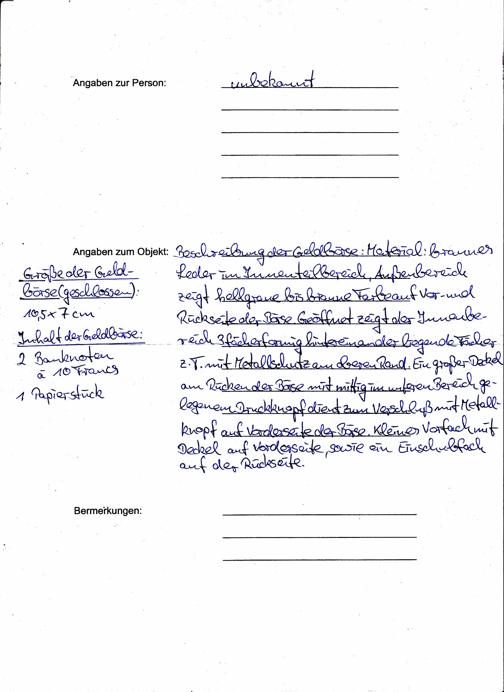 Angaben zur Person: unbekannt
Angaben zum Objekt: Beschreibung der Geldbörse: Material: braunes
Leder im Innenteilbereich, Außenbereich
zeigt hellgraue bis braune Farbe auf Vor- und
Rückseite der Börse Geöffnet zeigt der Innenbe-
reich 3 fächerförmig hintereinander liegende Fächer
z.T. mit Metallschutz am oberen Rand. Ein großer Deckel
am Rücken der Börse mit mittig im unteren Bereich ge-
legenem Druckknopf dient zum Verschluß mit Metall-
knopf auf Vorderseite der Börse. Kleines Vorfach mit
Deckel auf Vorderseite, sowie ein Einschubfach
auf der Rückseite.
Größe der Geld-
börse (geschlossen):
10,5 x 7 cm
Inhalt der Geldbörse:
2 Banknoten
à 10 Francs
1 Papierstück
Bermerkungen: